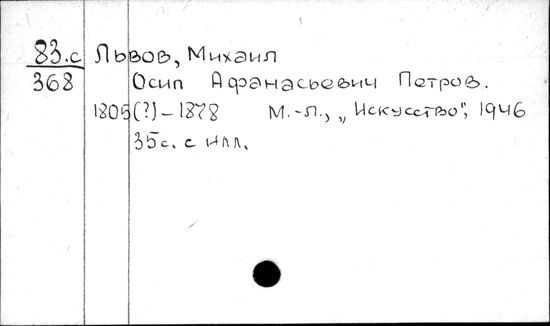 83.с Львов, Михаил
368 Осип Афанасьевич Петров.
1805(?) – 1878 М.-Л., „Искусство", 1946
35с. с илл.